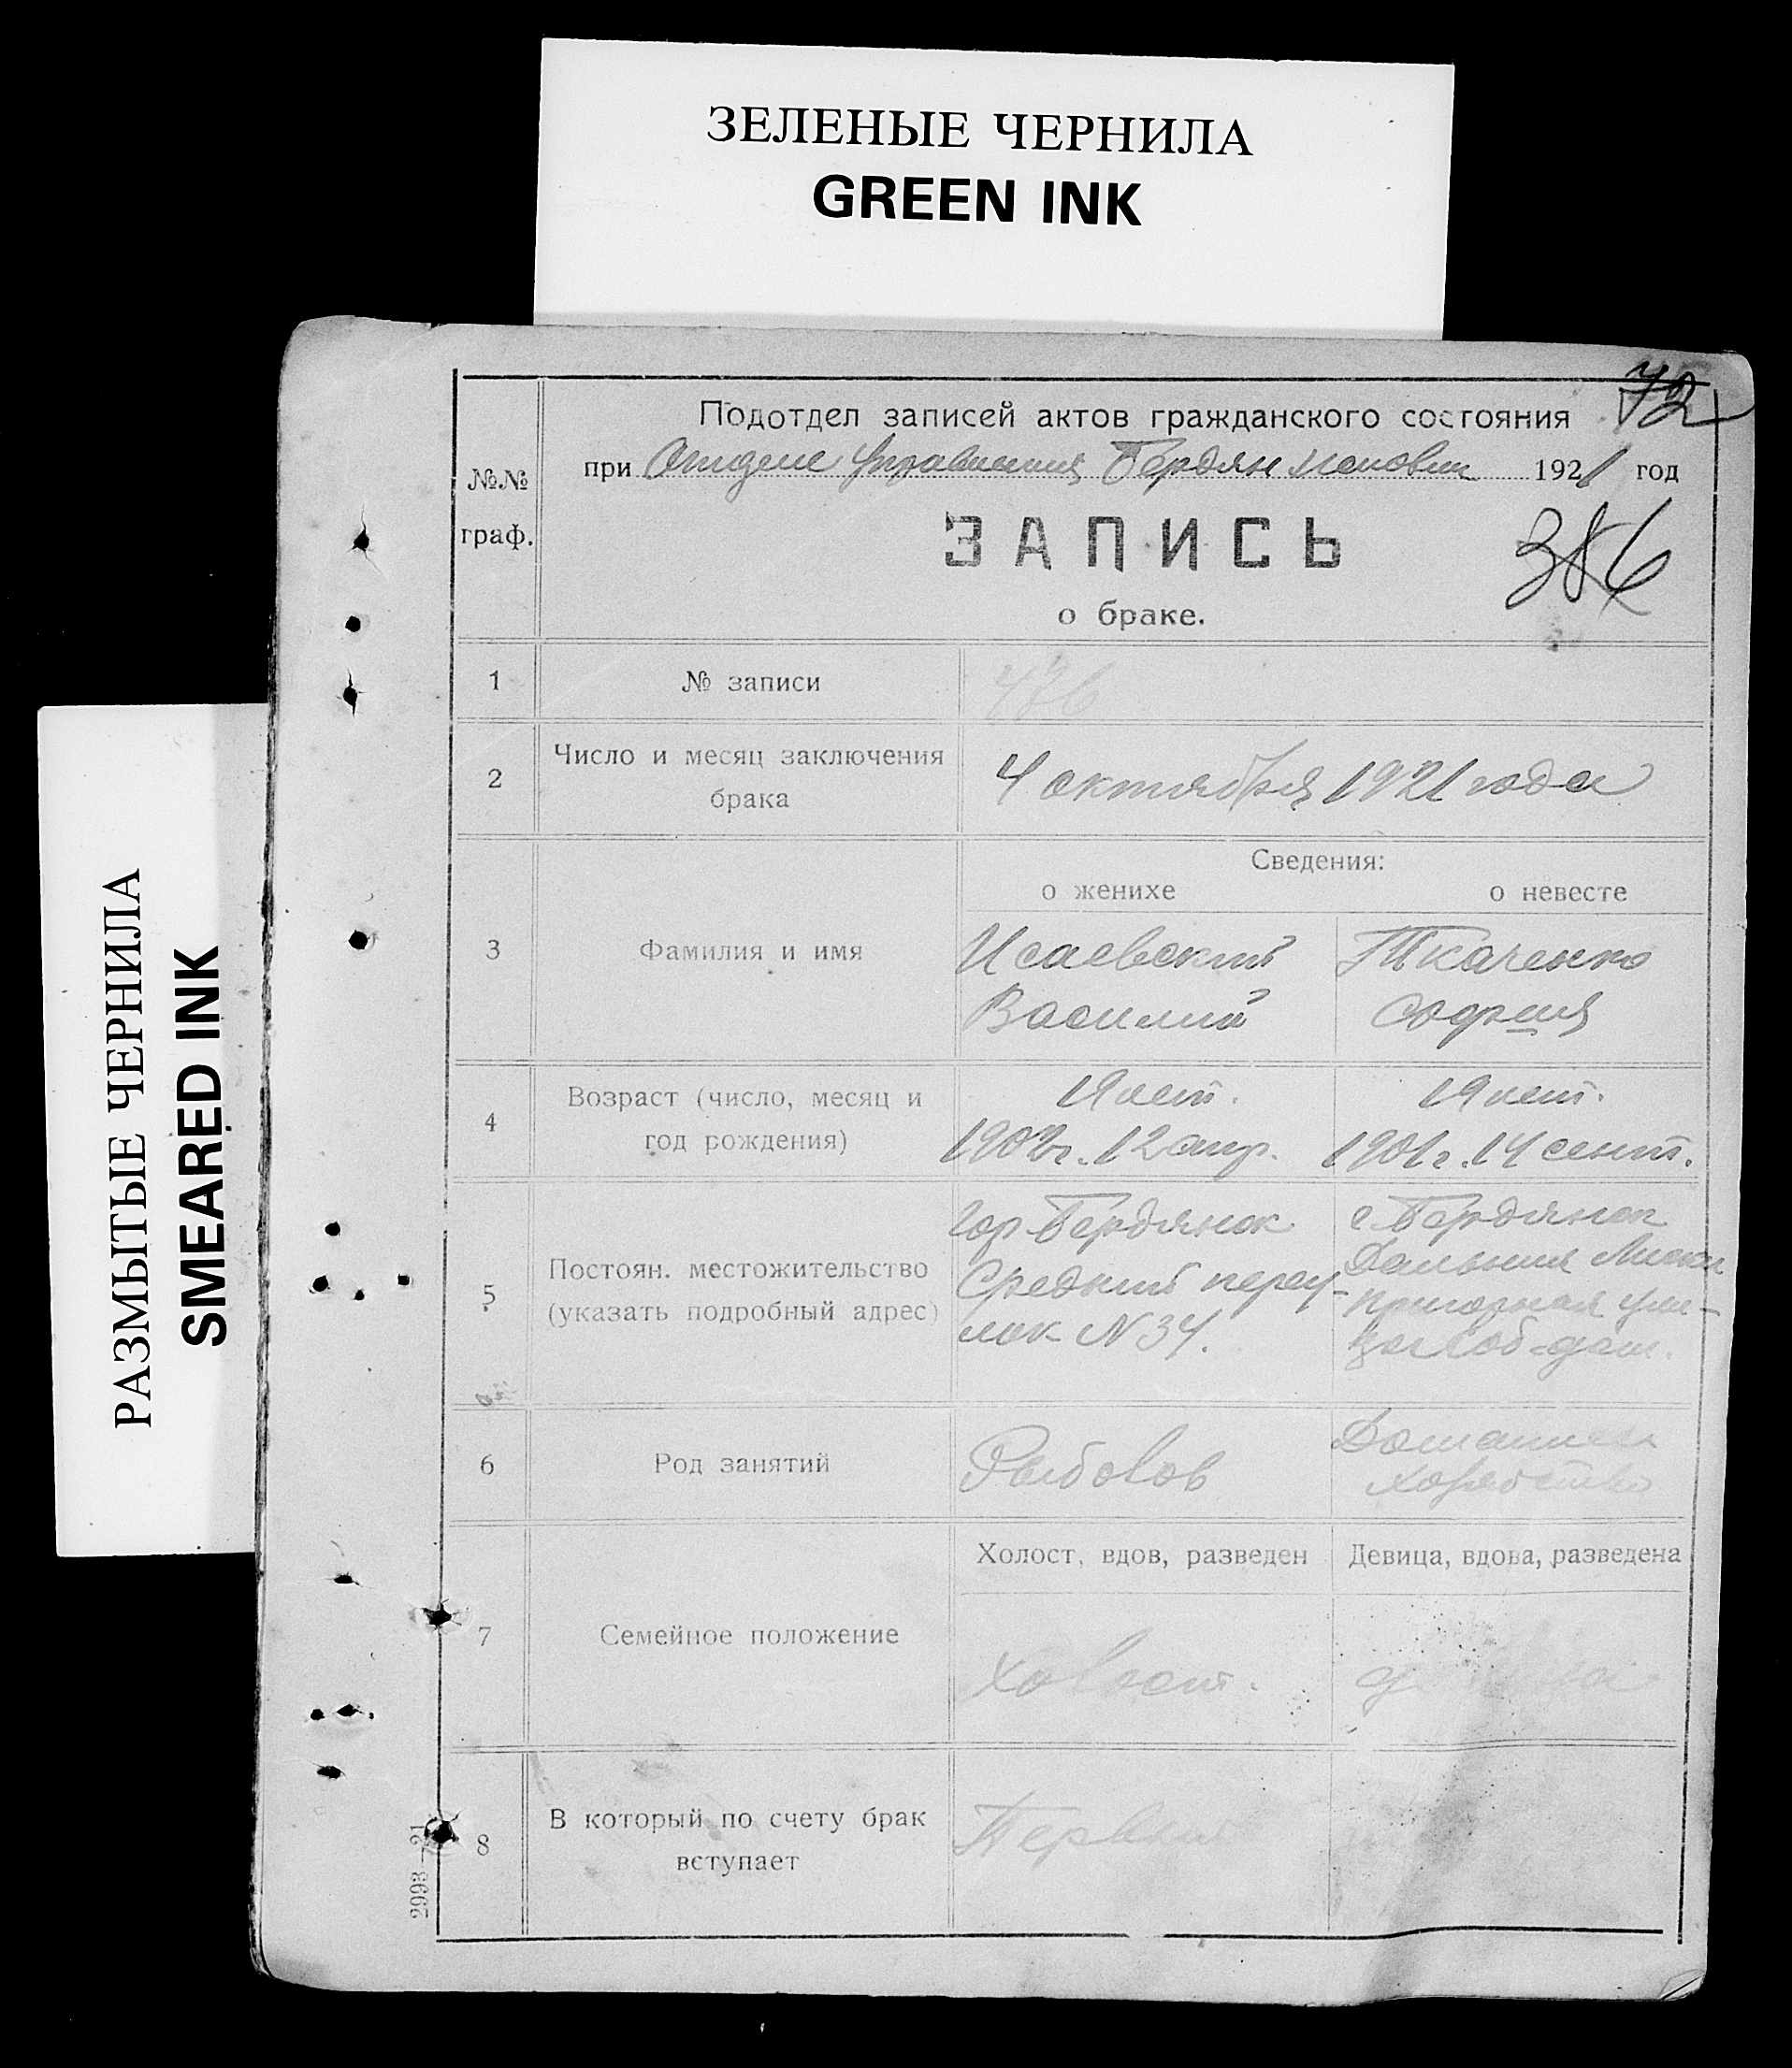 ЗЕЛЕНЫЕ ЧЕРНИЛА
GREEN INK
РАЗМЫТЫЕ ЧЕРНИЛА
SMEARED INK
72
Подотдел записей актов гражданского состояния
№№ граф.
при Отделе Управления Бердян 1921 год
ЗАПИСЬ
386
о браке.
1 № записи
2 Число и месяц заключения брака
4 октября 1921 года
Сведения:
о женихе о невесте
3 Фамилия и имя
Исаевский Ткаченко
Василий София
4 Возраст (число, месяц и год рождения)
19 лет. 19 лет.
1902г. 12 апр. 1901г. 14 сент.
5 Постоян. местожительство (указать подробный адрес)
гор Бердянск
Средний переу-
лок N 34.
г. Бердянск
Дальния
Пригорная ули-
6 Род занятий
Рыболов
Домашнее
хозяйство
7 Семейное положение
Холост, вдов, разведен Девица, вдова, разведена
Холост.
8 В который по счету брак вступает
Первый
2993—21